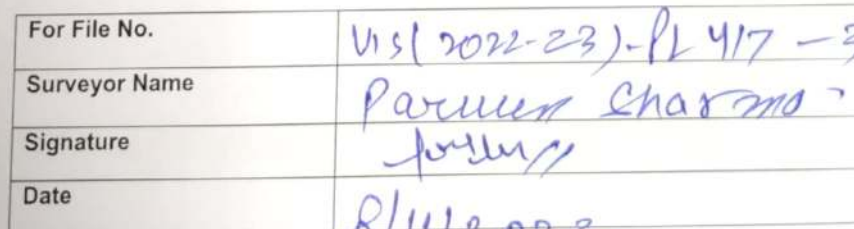 For File No. VIS(2022-23)-PL417-3
Surveyor Name Parveen Sharma
Signature
Date